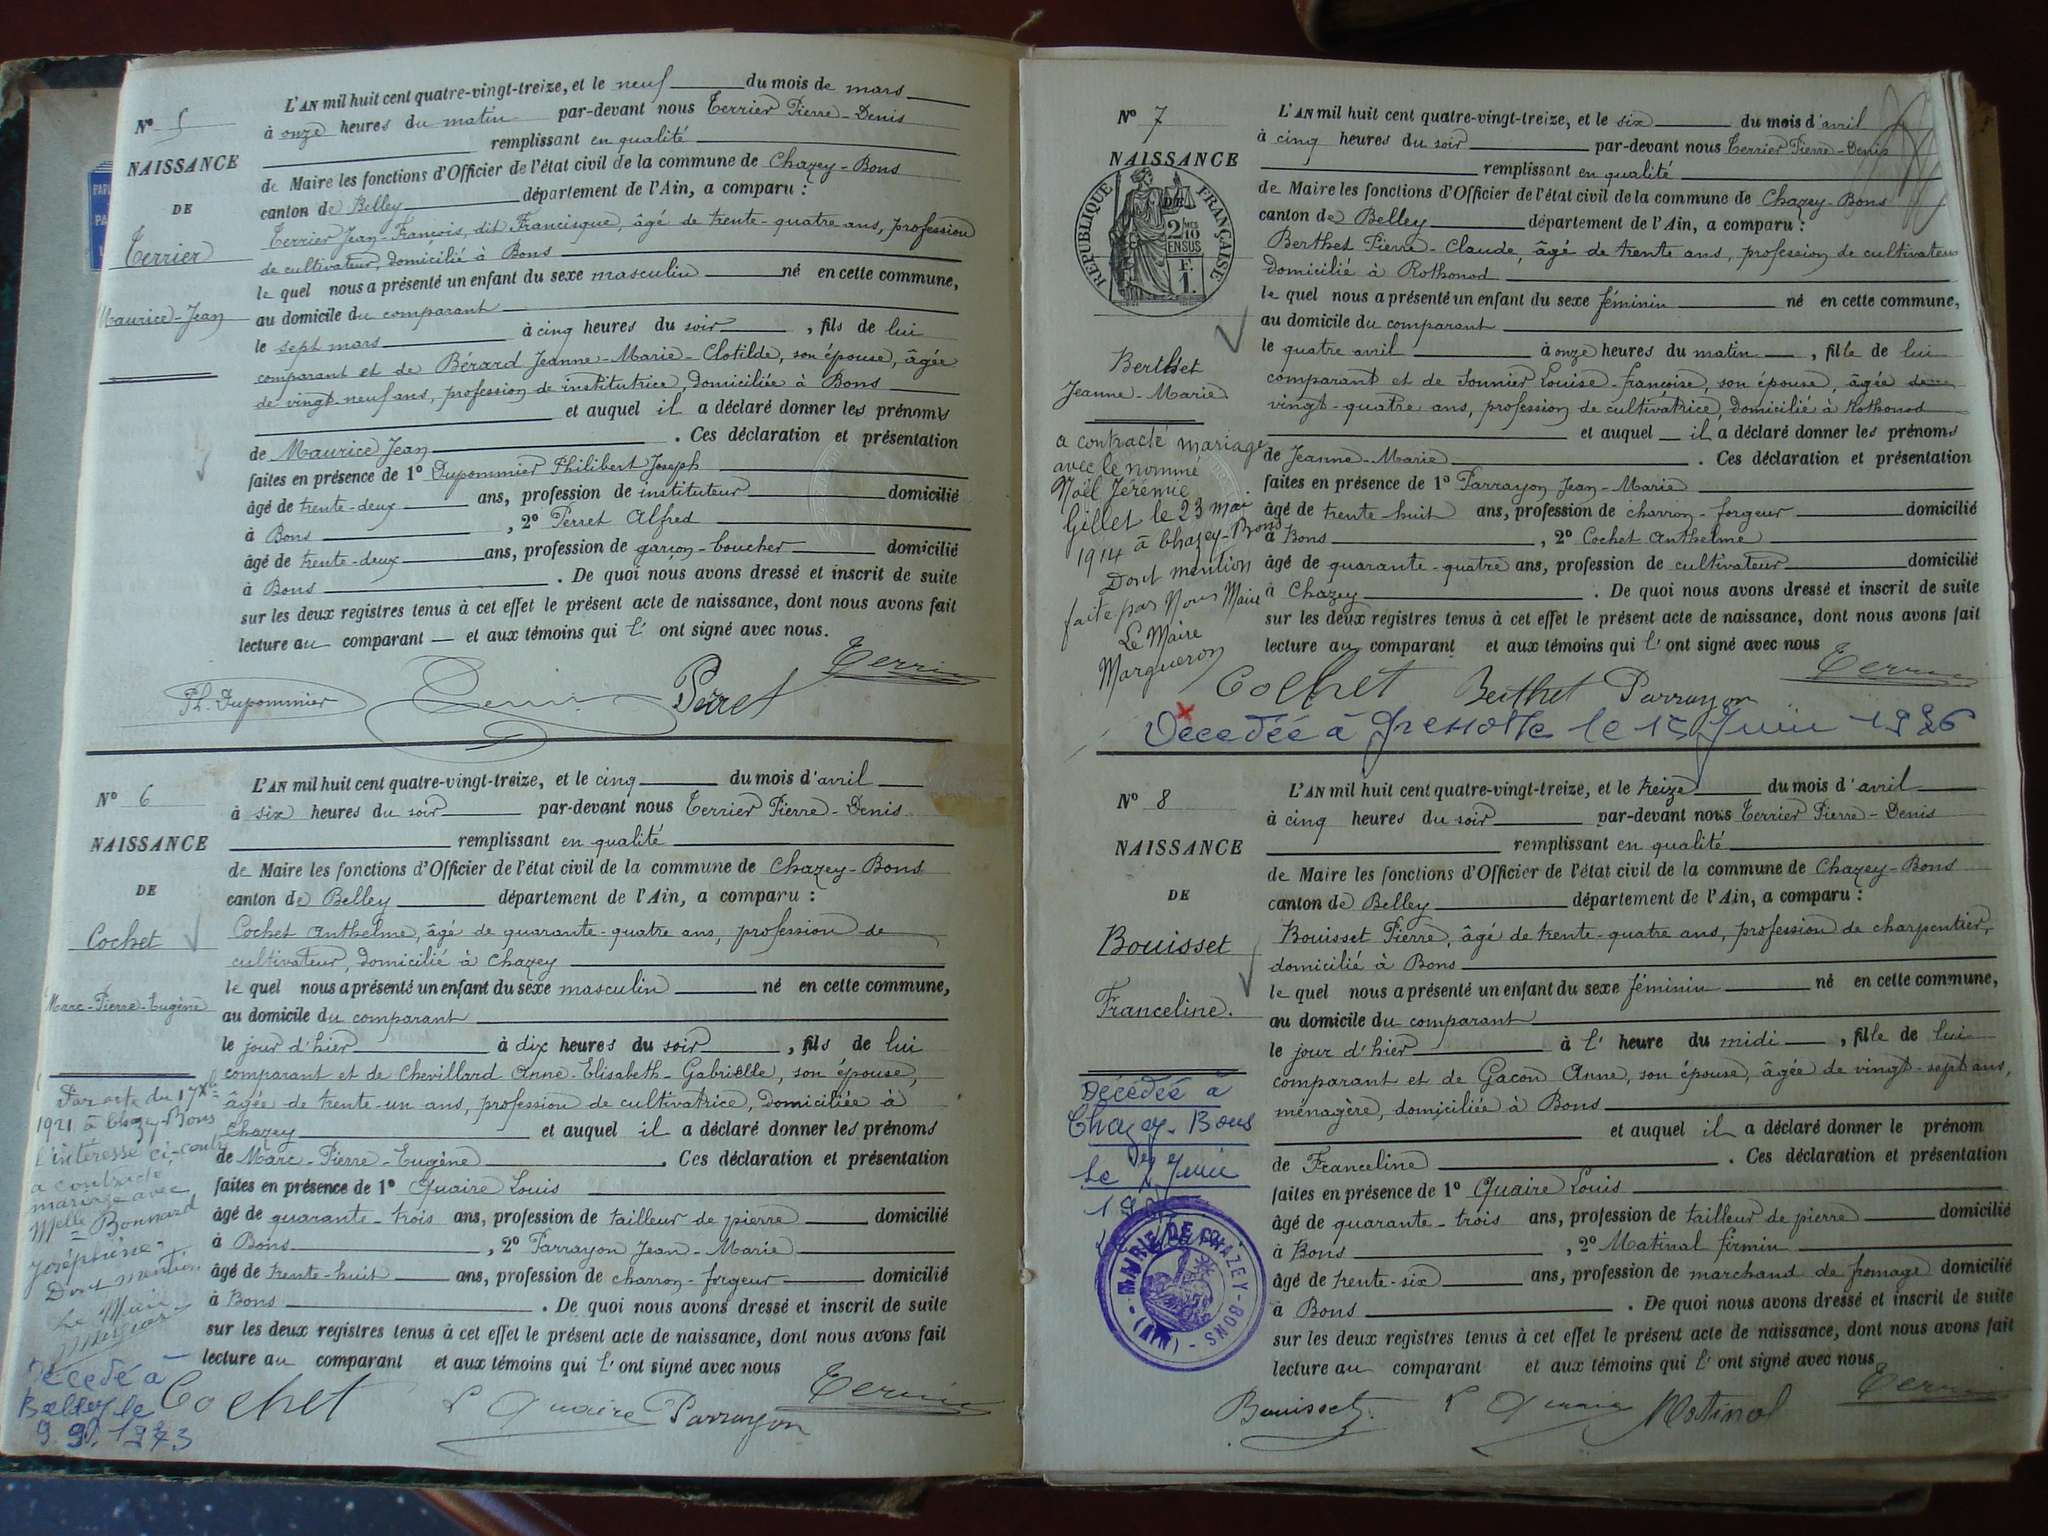 N° 5
NAISSANCE
DE
Terrier
Maurice-Jean
L'AN mil huit cent quatre-vingt-treize, et le neuf du mois de mars
à onze heures du matin par-devant nous Terrier Pierre-Denis
remplissant en qualité
de Maire les fonctions d'Officier de l'état civil de la commune de Chazey-Bons
canton de Belley département de l'Ain, a comparu :
Terrier Jean-François, dit Francisque, âgé de trente-quatre ans, profession
de cultivateur, domicilié à Bons
le quel nous a présenté un enfant du sexe masculin né en cette commune,
au domicile du comparant
le sept mars à cinq heures du soir, fils de lui
comparant et de Bérard Jeanne-Marie-Clotilde, son épouse, âgée
de vingt-neuf ans, profession de institutrice, domiciliée à Bons
et auquel il a déclaré donner les prénoms
de Maurice Jean. Ces déclaration et présentation
faites en présence de 1° Dupommier Philibert Joseph
âgé de trente-deux ans, profession de instituteur domicilié
à Bons, 2° Perret Alfred
âgé de trente-deux ans, profession de garçon-boucher domicilié
à Bons. De quoi nous avons dressé et inscrit de suite
sur les deux registres tenus à cet effet le présent acte de naissance, dont nous avons fait
lecture au comparant et aux témoins qui l'ont signé avec nous.
Ph. Dupommier Perret Terrier
N° 6
NAISSANCE
DE
Cochet
Marc-Pierre-Eugène
Par acte du 17 Xbre
1921 à Chazey-Bons
l'intéressé ci-contre
a contracté
mariage avec
Melle Bonnard
Joséphine
Dont mention
Le Maire
Décédé à
Belley le
L'AN mil huit cent quatre-vingt-treize, et le cinq du mois d'avril
à six heures du soir par-devant nous Terrier Pierre-Denis
remplissant en qualité
de Maire les fonctions d'Officier de l'état civil de la commune de Chazey-Bons
canton de Belley département de l'Ain, a comparu :
Cochet Anthelme, âgé de quarante-quatre ans, profession de
cultivateur, domicilié à Chazey
le quel nous a présenté un enfant du sexe masculin né en cette commune,
au domicile du comparant
le jour d'hier à dix heures du soir, fils de lui
comparant et de Chevillard Anne-Elisabeth-Gabrielle, son épouse,
âgée de trente-un ans, profession de cultivatrice, domiciliée à
Chazey et auquel il a déclaré donner les prénoms
de Marc-Pierre-Eugène. Ces déclaration et présentation
faites en présence de 1° Quaire Louis
âgé de quarante-trois ans, profession de tailleur de pierre domicilié
à Bons, 2° Parrayon Jean-Marie
âgé de trente-huit ans, profession de charron-forgeur domicilié
à Bons. De quoi nous avons dressé et inscrit de suite
sur les deux registres tenus à cet effet le présent acte de naissance, dont nous avons fait
lecture au comparant et aux témoins qui l'ont signé avec nous
Cochet L Quaire Parrayon Terrier
N° 7
NAISSANCE
RÉPUBLIQUE FRANÇAISE
DE
2/10 EN SUS
F. 1.
Berthet
Jeanne-Marie
a contracté mariage
avec le nommé
Noël Jérémie
Gillet le 23 mai
1914 à Chazey-Bons
Dont mention
faite par Nous Maire
Le Maire
Margueron
L'AN mil huit cent quatre-vingt-treize, et le six du mois d'avril
à cinq heures du soir par-devant nous Terrier Pierre-Denis
remplissant en qualité
de Maire les fonctions d'Officier de l'état civil de la commune de Chazey-Bons
canton de Belley département de l'Ain, a comparu :
Berthet Pierre-Claude, âgé de trente ans, profession de cultivateur
domicilié à Rothonod
le quel nous a présenté un enfant du sexe féminin né en cette commune,
au domicile du comparant
le quatre avril à onze heures du matin, fille de lui
comparant et de Sonnier Louise-Françoise, son épouse, âgée de
vingt-quatre ans, profession de cultivatrice, domicilié à Rothonod
et auquel il a déclaré donner les prénoms
de Jeanne-Marie. Ces déclaration et présentation
faites en présence de 1° Parrayon Jean-Marie
âgé de trente-huit ans, profession de charron-forgeur domicilié
à Bons, 2° Cochet Anthelme
âgé de quarante-quatre ans, profession de cultivateur domicilié
à Chazey. De quoi nous avons dressé et inscrit de suite
sur les deux registres tenus à cet effet le présent acte de naissance, dont nous avons fait
lecture au comparant et aux témoins qui l'ont signé avec nous
Cochet Berthet Parrayon Terrier
Décédée à Grenoble le 15 Juin
N° 8
NAISSANCE
DE
Bouisset
Franceline.
Décédée à
Chazey-Bons
Le Juin
MAIRIE DE CHAZEY-BONS - (AIN) -
L'AN mil huit cent quatre-vingt-treize, et le treize du mois d'avril
à cinq heures du soir par-devant nous Terrier Pierre-Denis
remplissant en qualité
de Maire les fonctions d'Officier de l'état civil de la commune de Chazey-Bons
canton de Belley département de l'Ain, a comparu :
Bouisset Pierre, âgé de trente-quatre ans, profession de charpentier,
domicilié à Bons
le quel nous a présenté un enfant du sexe féminin né en cette commune,
au domicile du comparant
le jour d'hier à l'heure du midi, fille de lui
comparant et de Gacon Anne, son épouse, âgée de vingt-sept ans,
ménagère, domiciliée à Bons
et auquel il a déclaré donner le prénom
de Franceline. Ces déclaration et présentation
faites en présence de 1° Quaire Louis
âgé de quarante-trois ans, profession de tailleur de pierre domicilié
à Bons, 2° Matinal firmin
âgé de trente-six ans, profession de marchand de fromage domicilié
à Bons. De quoi nous avons dressé et inscrit de suite
sur les deux registres tenus à cet effet le présent acte de naissance, dont nous avons fait
lecture au comparant et aux témoins qui l'ont signé avec nous
Bouisset L Quaire Matinal Terrier